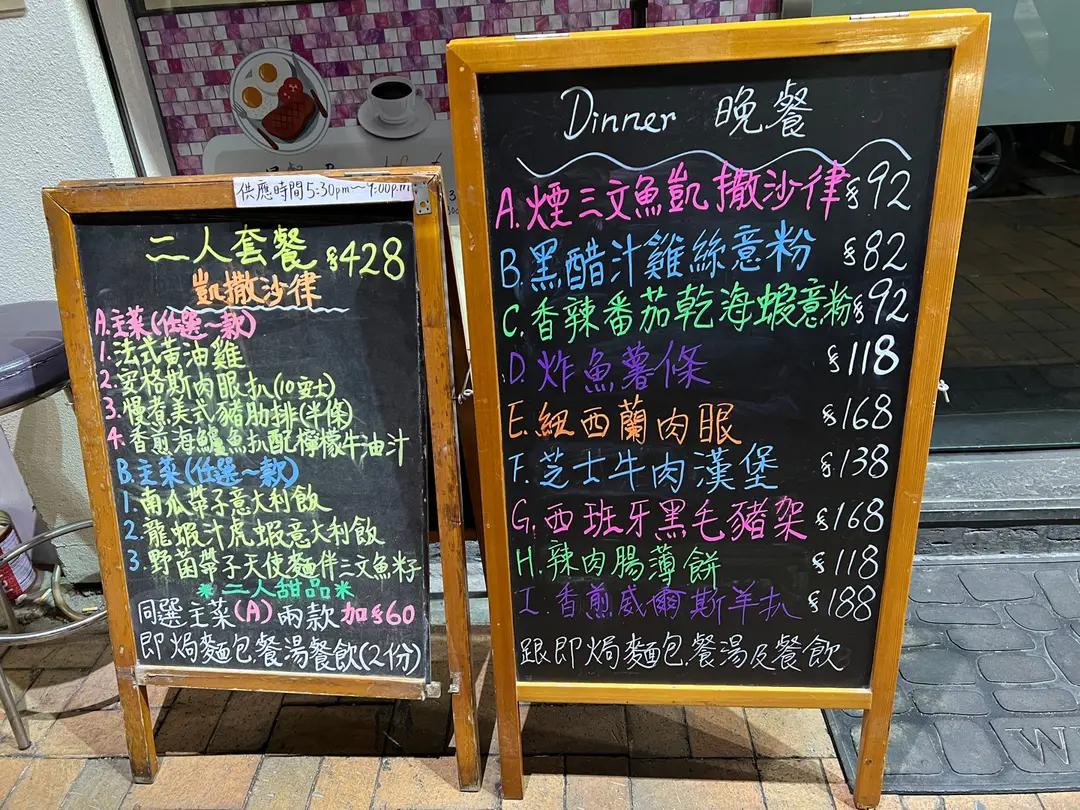 供應時間5:30pm～9:00p.m
二人套餐 $428
凱撒沙律
A.主菜(任選一款)
1.法式黃油雞
2.安格斯肉眼扒(10安士)
3.慢煮美式豬肋排(半條)
4.香煎海鱸魚扒配檸檬牛油汁
B.主菜(任選一款)
1.南瓜帶子意大利飯
2.龍蝦汁虎蝦意大利飯
3.野菌帶子天使麵伴三文魚籽
*二人甜品*
同選主菜(A)兩款加$60
即焗麵包.餐湯餐飲(2份)
Dinner 晚餐
A.煙三文魚凱撒沙律 $92
B.黑醋汁雞絲意粉 $82
C.香辣番茄乾海蝦意粉 $92
D.炸魚薯條 $118
E.紐西蘭肉眼 $168
F.芝士牛肉漢堡 $138
G.西班牙黑毛豬架 $168
H.辣肉腸薄餅 $118
I.香煎威爾斯羊扒 $188
跟即焗麵包.餐湯及餐飲